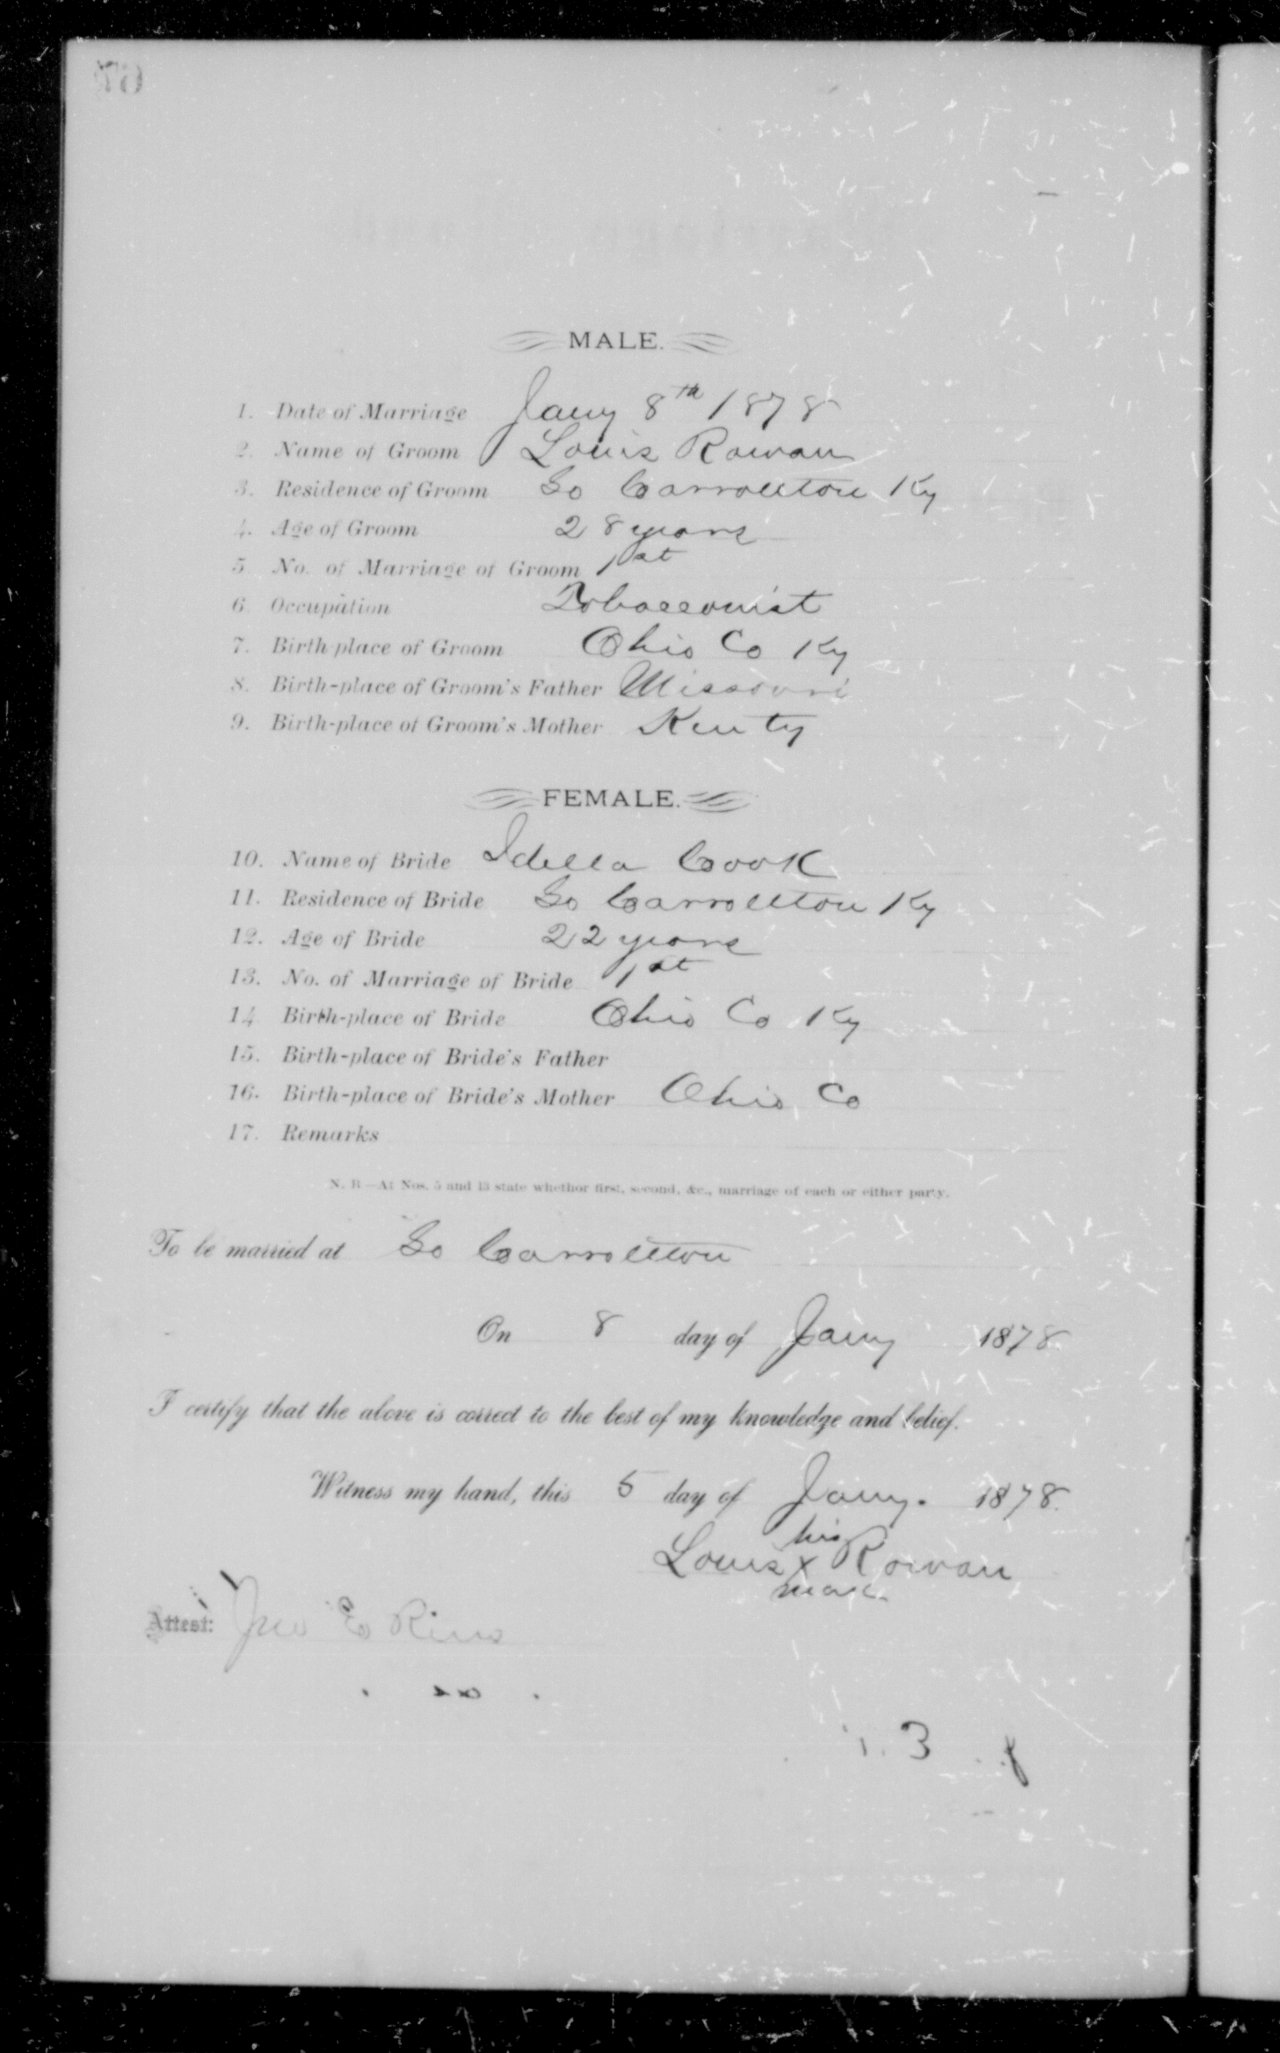 MALE.
1. Date of Marriage Jany 8th 1878
2. Name of Groom Louis Rowan
3. Residence of Groom So Carrollton Ky
4. Age of Groom 28 years
5 No. of Marriage of Groom 1st
6. Occupation Tobacconist
7. Birth-place of Groom Ohio Co Ky
8. Birth-place of Groom's Father Missouri
9. Birth-place of Groom's Mother Kenty
FEMALE.
10. Name of Bride Idella Cook
11. Residence of Bride So Carrollton Ky
12. Age of Bride 22 years
13. No. of Marriage of Bride 1st
14 Birth-place of Bride Ohio Co Ky
15. Birth-place of Bride's Father
16. Birth-place of Bride's Mother Ohio Co
17. Remarks
N. B—At Nos. 5 and 13 state whether first, second, &c., marriage of each or either party.
To be married at So Carrollton
On 8 day of Jany 1878
I certify that the above is correct to the best of my knowledge and belief.
Witness my hand, this 5 day of Jany. 1878.
his
Louis x Rowan
mark
Attest: Jno E
3